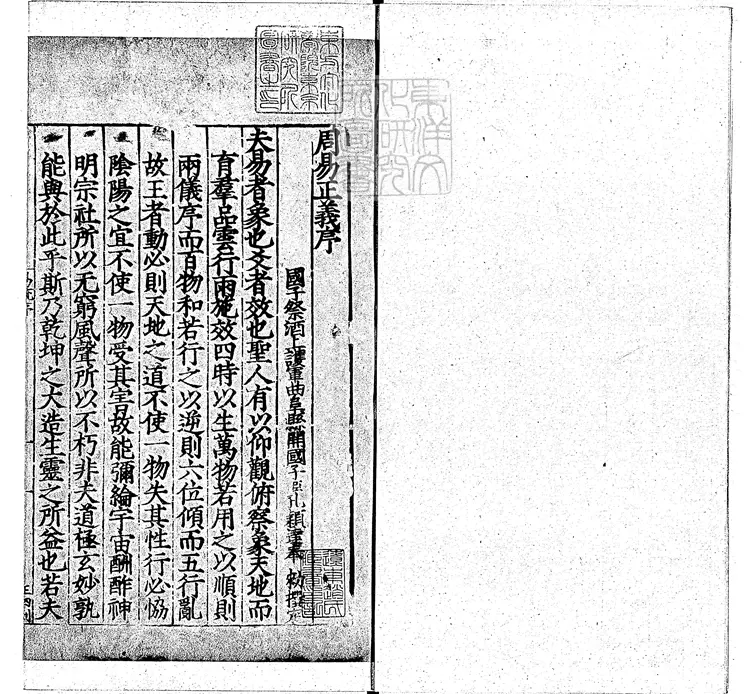 周易正義序
國子祭酒上護軍曲阜縣開國子臣孔穎達奉 勅撰定
夫易者象也爻者效也聖人有以仰觀俯察象天地而
育羣品雲行雨施效四時以生萬物若用之以順則
兩儀序而百物和若行之以逆則六位傾而五行亂
故王者動必則天地之道不使一物失其性行必恊
陰陽之宜不使一物受其害故能彌綸宇宙酬酢神
明宗社所以无窮風聲所以不朽非夫道極玄妙孰
能與於此乎斯乃乾坤之大造生靈之所益也若夫